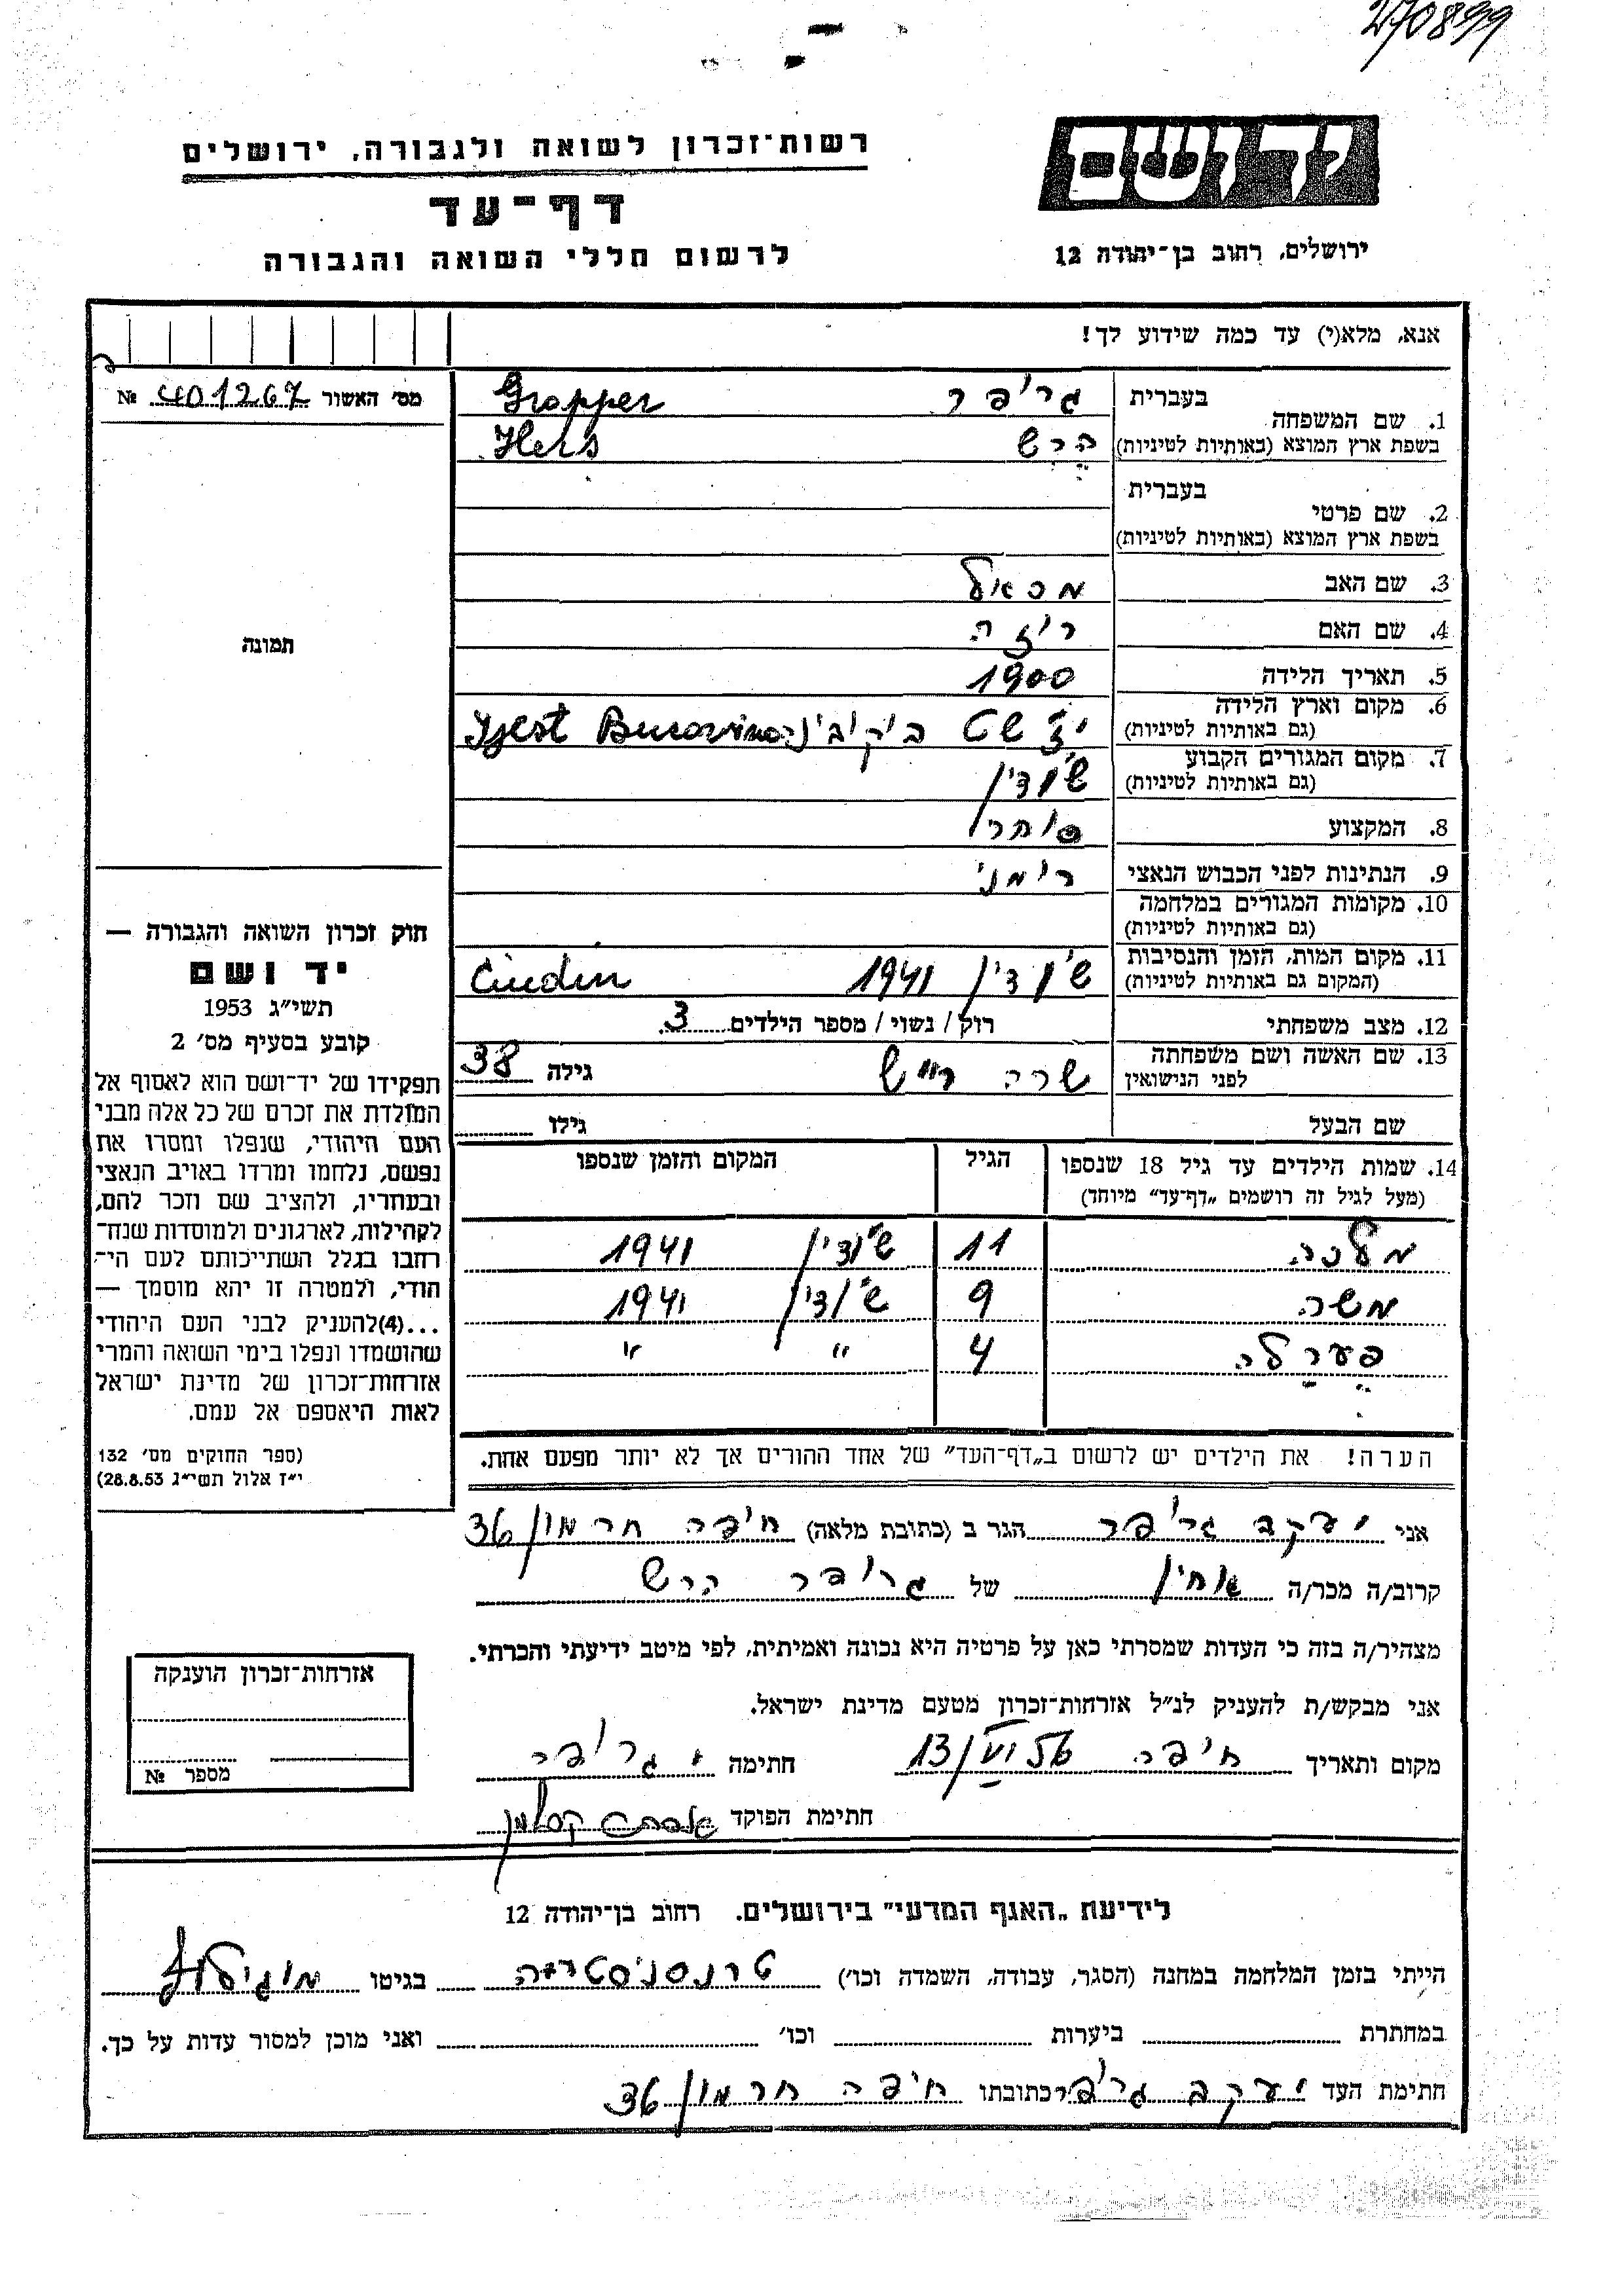 270899
רשות־זכרון לשואה ולגבורה, ירושלים
דף־עד
לרשום חללי השואה והגבורה
יד ושם
ירושלים, רחוב בן־יהודה 12
אנא, מלא(י) עד כמה שידוע לך!
מס׳ האשור 401267 №
תמונה
1. שם המשפחה
בעברית גרופר Gropper
בשפת ארץ המוצא (באותיות לטיניות) הרש Hers
2. שם פרטי
בעברית
בשפת ארץ המוצא (באותיות לטיניות)
3. שם האב מכאל
4. שם האם רוזה
5. תאריך הלידה 1900
6. מקום וארץ הלידה
(גם באותיות לטיניות)
7. מקום המגורים הקבוע שּוּדין
(גם באותיות לטיניות)
8. המקצוע סוחר
9. הנתינות לפני הכבוש הנאצי רומני
10. מקומות המגורים במלחמה
(גם באותיות לטיניות)
11. מקום המות, הזמן והנסיבות 1941 Ciudin
(המקום גם באותיות לטיניות)
12. מצב משפחתי רוק / נשוי / מספר הילדים 3
13. שם האשה ושם משפחתה
לפני הנישואין שרה רייש גילה 38
שם הבעל גילו
14. שמות הילדים עד גיל 18 שנספו הגיל המקום והזמן שנספו
(מעל לגיל זה רושמים „דף־עד״ מיוחד)
מלכה 11 1941
משה 9 1941
פערלה 4 " "
הערה! את הילדים יש לרשום ב„דף־העד״ של אחד ההורים אך לא יותר מפעם אחת.
חוק זכרון השואה והגבורה —
יד ושם
תשי״ג 1953
קובע בסעיף מס׳ 2
תפקידו של יד־ושם הוא לאסוף אל
המולדת את זכרם של כל אלה מבני
העם היהודי, שנפלו ומסרו את
נפשם, נלחמו ומרדו באויב הנאצי
ובעוזריו, ולהציב שם וזכר להם,
לקהילות, לארגונים ולמוסדות שנח־
רבו בגלל השתייכותם לעם הי־
הודי, ולמטרה זו יהא מוסמך —
...(4)להעניק לבני העם היהודי
שהושמדו ונפלו בימי השואה והמרי
אזרחות־זכרון של מדינת ישראל
לאות היאספם אל עמם.
(ספר החוקים מס׳ 132
י״ז אלול תשי״ג 28.8.53)
אני יעקב גרופר הגר ב (כתובת מלאה) חיפה חרמון 36
קרוב/ה מכר/ה אחין של גרופר הרש
מצהיר/ה בזה כי העדות שמסרתי כאן על פרטיה היא נכונה ואמיתית, לפי מיטב ידיעתי והכרתי.
אני מבקש/ת להעניק לנ״ל אזרחות־זכרון מטעם מדינת ישראל.
מקום ותאריך חיפה חתימה י גרופר
חתימת הפוקד
אזרחות־זכרון הוענקה
מספר №
לידיעת „האגף המדעי״ בירושלים. רחוב בן־יהודה 12
הייתי בזמן המלחמה במחנה (הסגר, עבודה, השמדה וכו׳) טרנסניסטריה בגיטו מוגילוב
במחתרת ביערות וכו׳ ואני מוכן למסור עדות על כך.
חתימת העד יעקב גרופר כתובתו חיפה חרמון 36